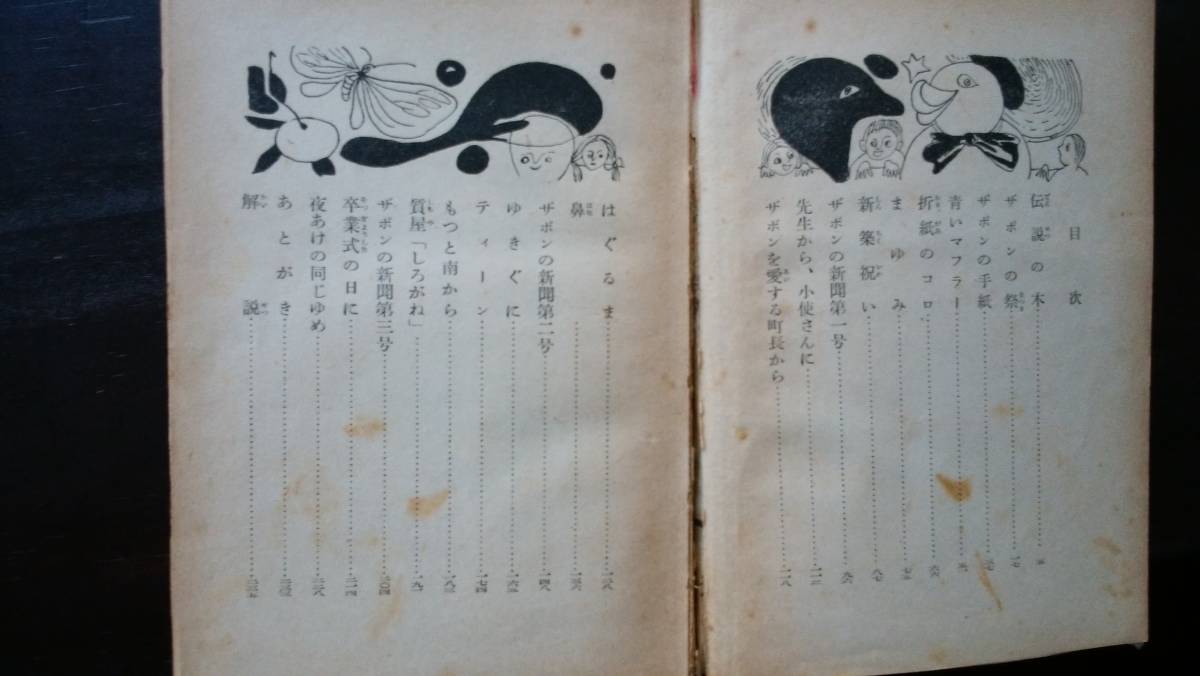 目次
伝説の木
ザボンの祭
ザボンの手紙
青いマフラー
折紙のコロ
まゆみ
新築祝い
ザボンの新聞第一号
先生から、小使さんに
ザボンを愛する町長から 一一八
はぐるま 一三八
鼻
ザボンの新聞第二号
ゆきぐに
ティーン 一七四
もつと南から
質屋「しろがね」
ザボンの新聞第三号 二〇四
卒業式の日に 二一四
夜あけの同じゆめ 二二八
あとがき
解説